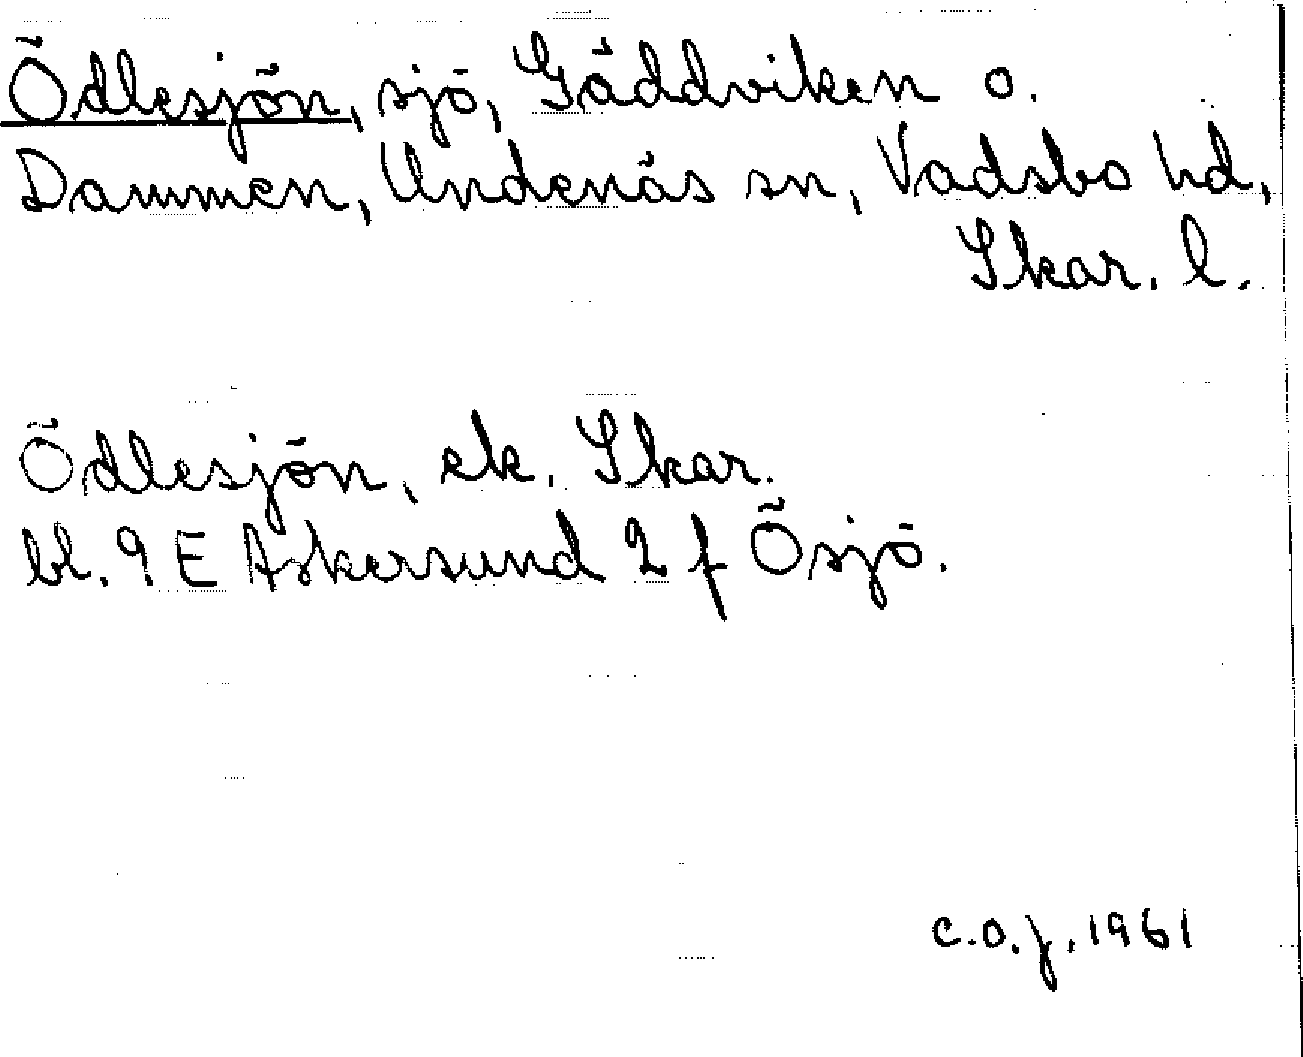 Ödlesjön, sjö, Gäddviken o.
Dammen, Undenäs sn, Vadsbo hd,
Skar. l.
Ödlesjön, ek. Skar.
bl. 9 E Askersund 2 f Ösjö.
C.O.J. 1961